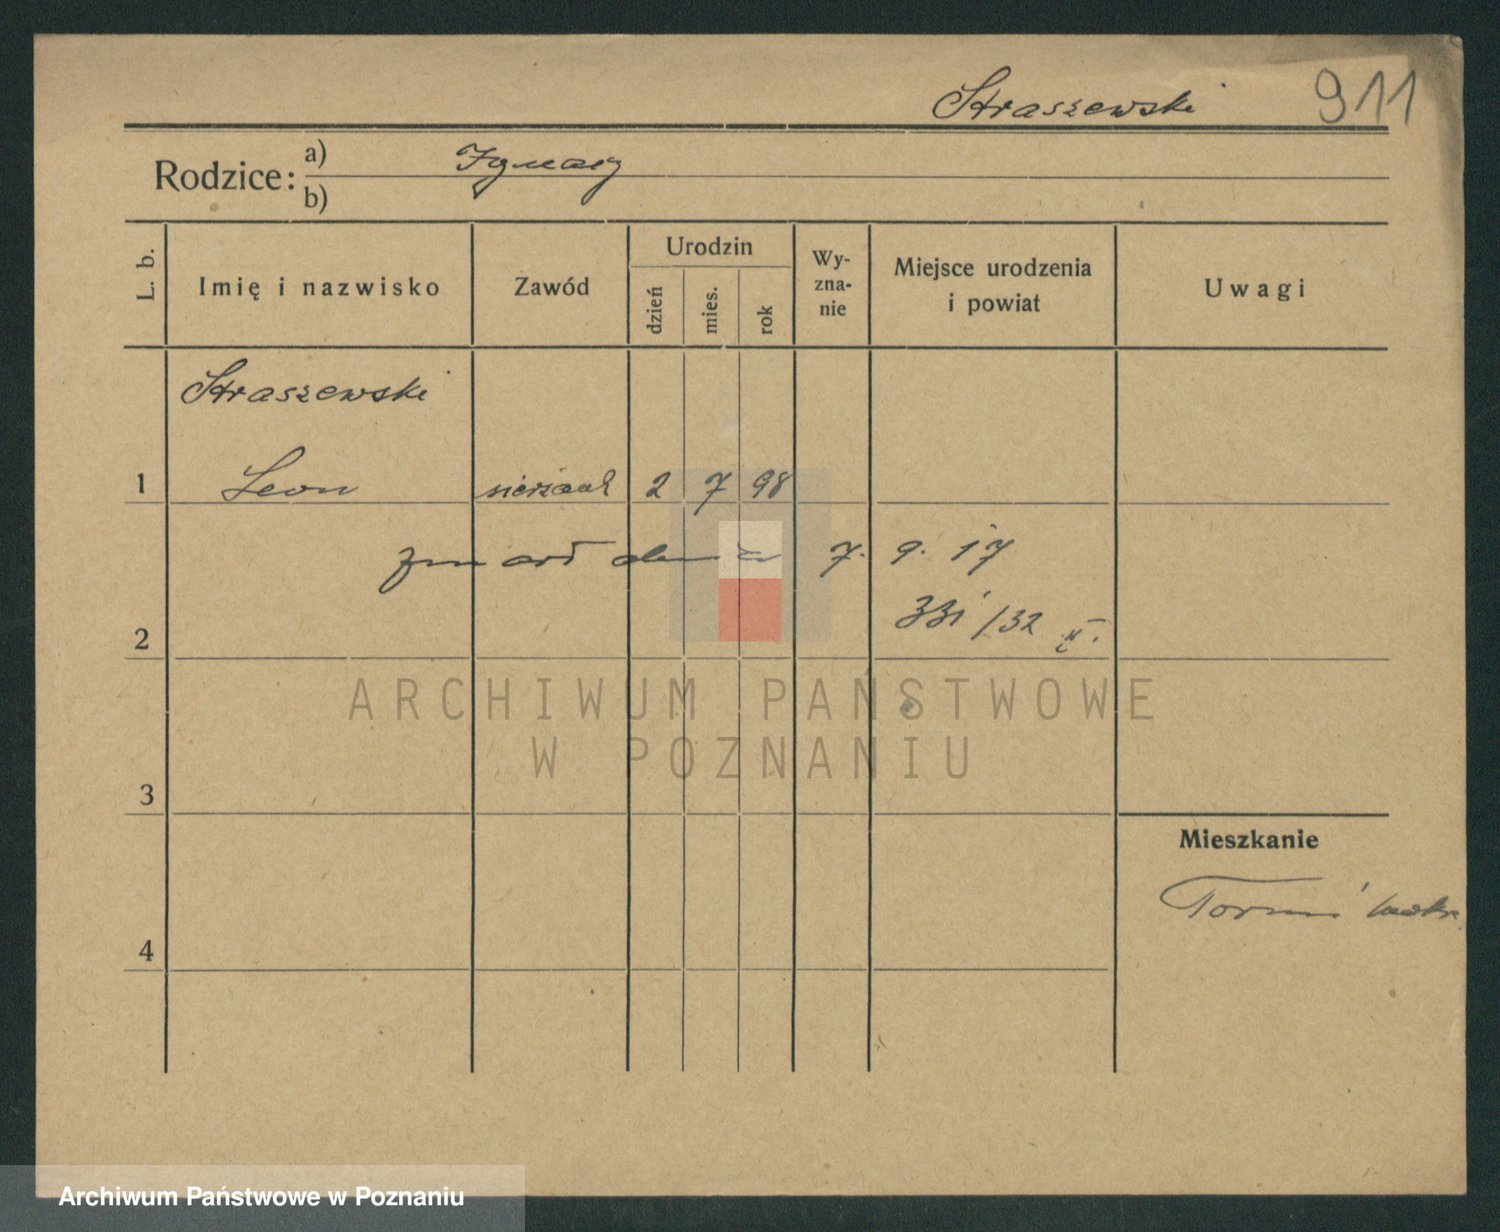 Straszewski 911
Rodzice: a) Ignacy
b)
L. b. Imię i nazwisko Zawód Urodzin dzień mies. rok Wy-zna-nie Miejsce urodzenia i powiat Uwagi
Straszewski
1 Leon sierżant 2 7 98
zmarł dnia 7. 9. 17
331/32
2
ARCHIWUM PAŃSTWOWE
W POZNANIU
3
Mieszkanie
Toruń
4
Archiwum Państwowe w Poznaniu